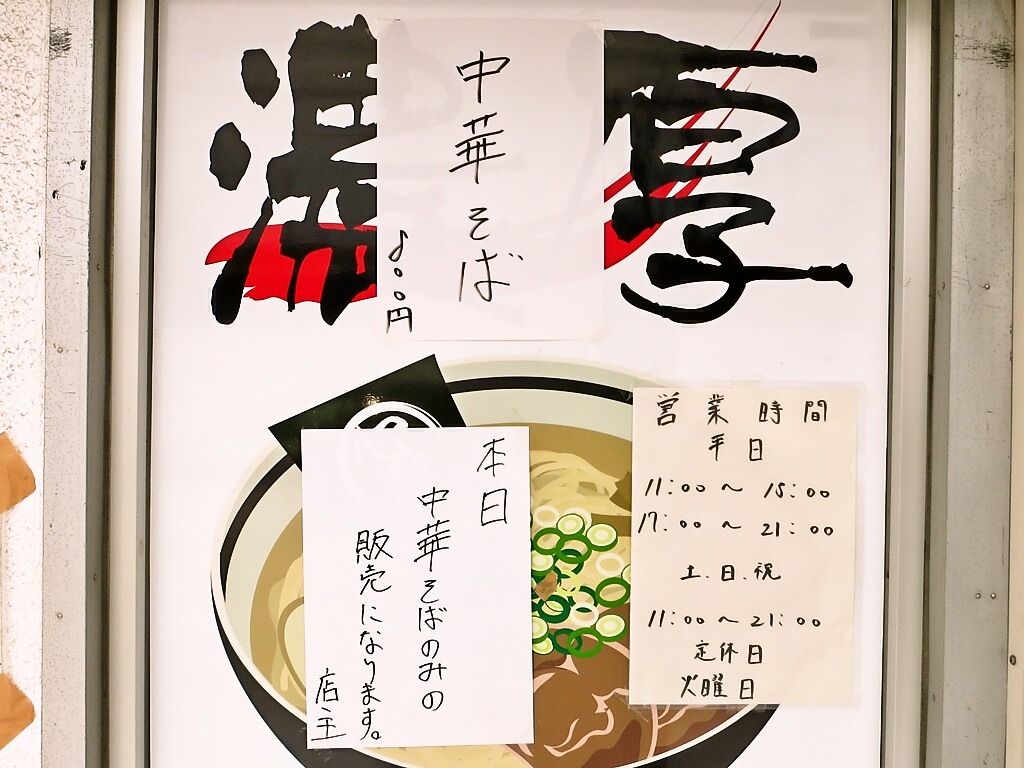 濃厚
中華そば
営業時間
平日
11:00～15:00
17:00～21:00
土、日、祝
11:00～21:00
定休日
火曜日
本日
中華そばのみの
販売になります。
店主